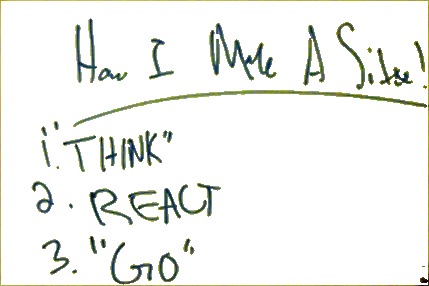 How I Make A Sitse!
1. "THINK"
2. REACT
3. "GO"